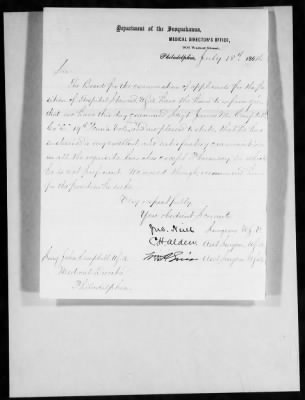 Department of the Susquehanna,
MEDICAL DIRECTOR'S OFFICE,
Philadelphia, July 18th 1864
Sir
The Board for the examination of applicants for the po-
sition of Hospital Steward U.S.A. have the honor to inform you
that we have this day examined
Co and are pleased to state that he has
sustained a very
in all the requisite branches except Pharmacy in which
he is not proficient. We would though recommend him
for the position he seeks.
Very respectfully
Your obedient Servants
Jno. Neill Surgeon U.S.V.
C H Alden Asst Surgeon U.S.A.
Asst Surgeon U.S.A.
Surg. John Campbell U.S.A.
Medical Director
Philadelphia